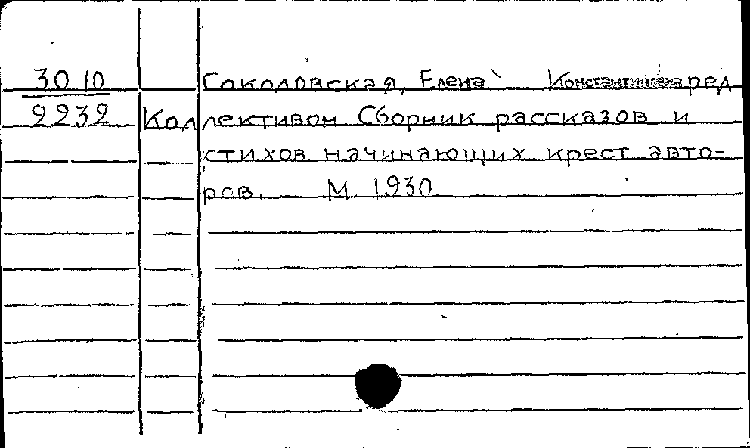 30 10 Соколовская, Елена Константин ред
9232 Коллективом Сборник рассказов и
стихов начинающих крест авто-
ров. М. 1930